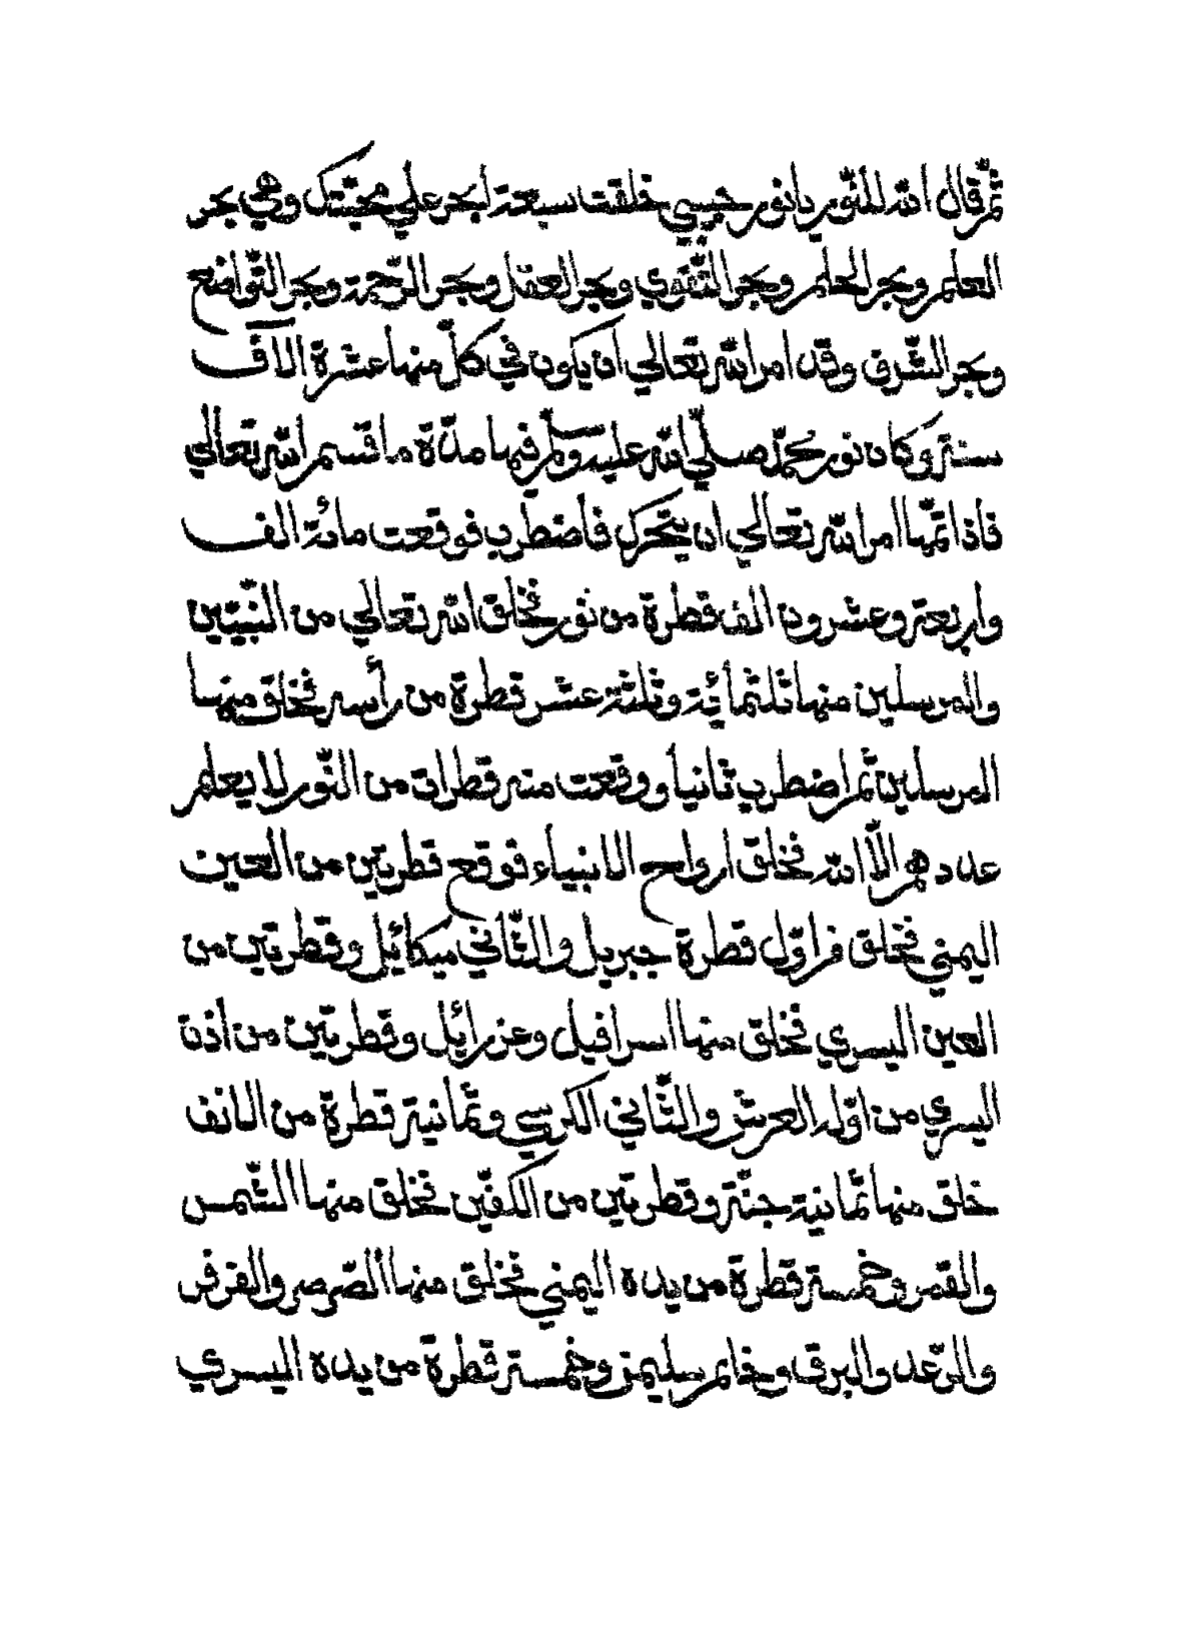 ثمّ قال الله للنّور يا نور حبيبي خلقت سبعة ابحر علي محبّتك وهي بحر
العلم وبحر الحلم وبحر التّقوي وبحر العقل وبحر الرّحمة وبحر التّواضع
وبحر الشّرق وقد امر الله تعالي ان يكون في كلّ منها عشرة الآف
سنة وكان نور محمّد صلّي الله عليه وسلّم فيها مدّة ما قسم الله تعالي
فاذا تمّها امر الله تعالي ان يتحرك فأضطرب فوقعت مائة الف
واربعة وعشرون الف قطرة من نور فخلق الله تعالي من النّبيّين
والمرسلين منها ثلثمائة وثلثة عشر قطرة من رأسه فخلق منها
المرسلين ثمّ اضطرب ثانيا ووقعت منه قطرات من النّور لا يعلم
عددهم الّا الله فخلق ارواح الانبياء فوقع قطرتين من العين
اليمني فخلق من اوّل قطرة جبريل والثّاني ميكائيل وقطرتين من
العين اليسري فخلق منها اسرافيل وعزرائيل وقطرتين من أذن
اليسري من اوّله العرش والثّاني الكرسي وثمانية قطرة من الانف
خلق منها ثمانية جنّة وقطرتين من الكفّين فخلق منها الشّمس
والقمر وخمسة قطرة من يده اليمني فخلق منها الصّرصر والفرفر
والرّعد والبرق وخاتم سليمن وخمسة قطرة من يده اليسري